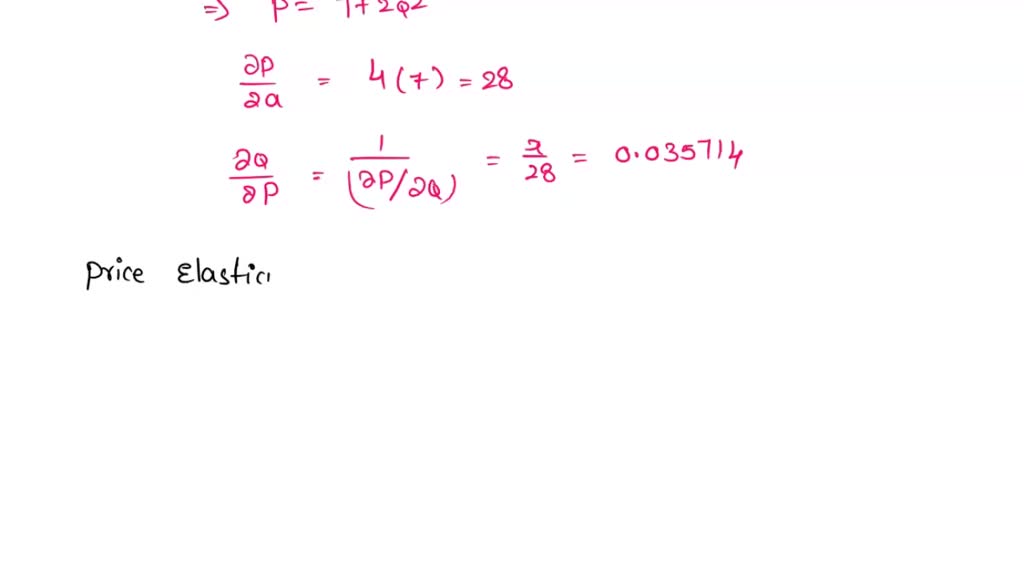 ⇒ P = 7+2Q2
∂P/∂Q = 4(7) = 28
∂Q/∂P = 1/(∂P/∂Q) = 1/28 = 0.035714
Price Elastic